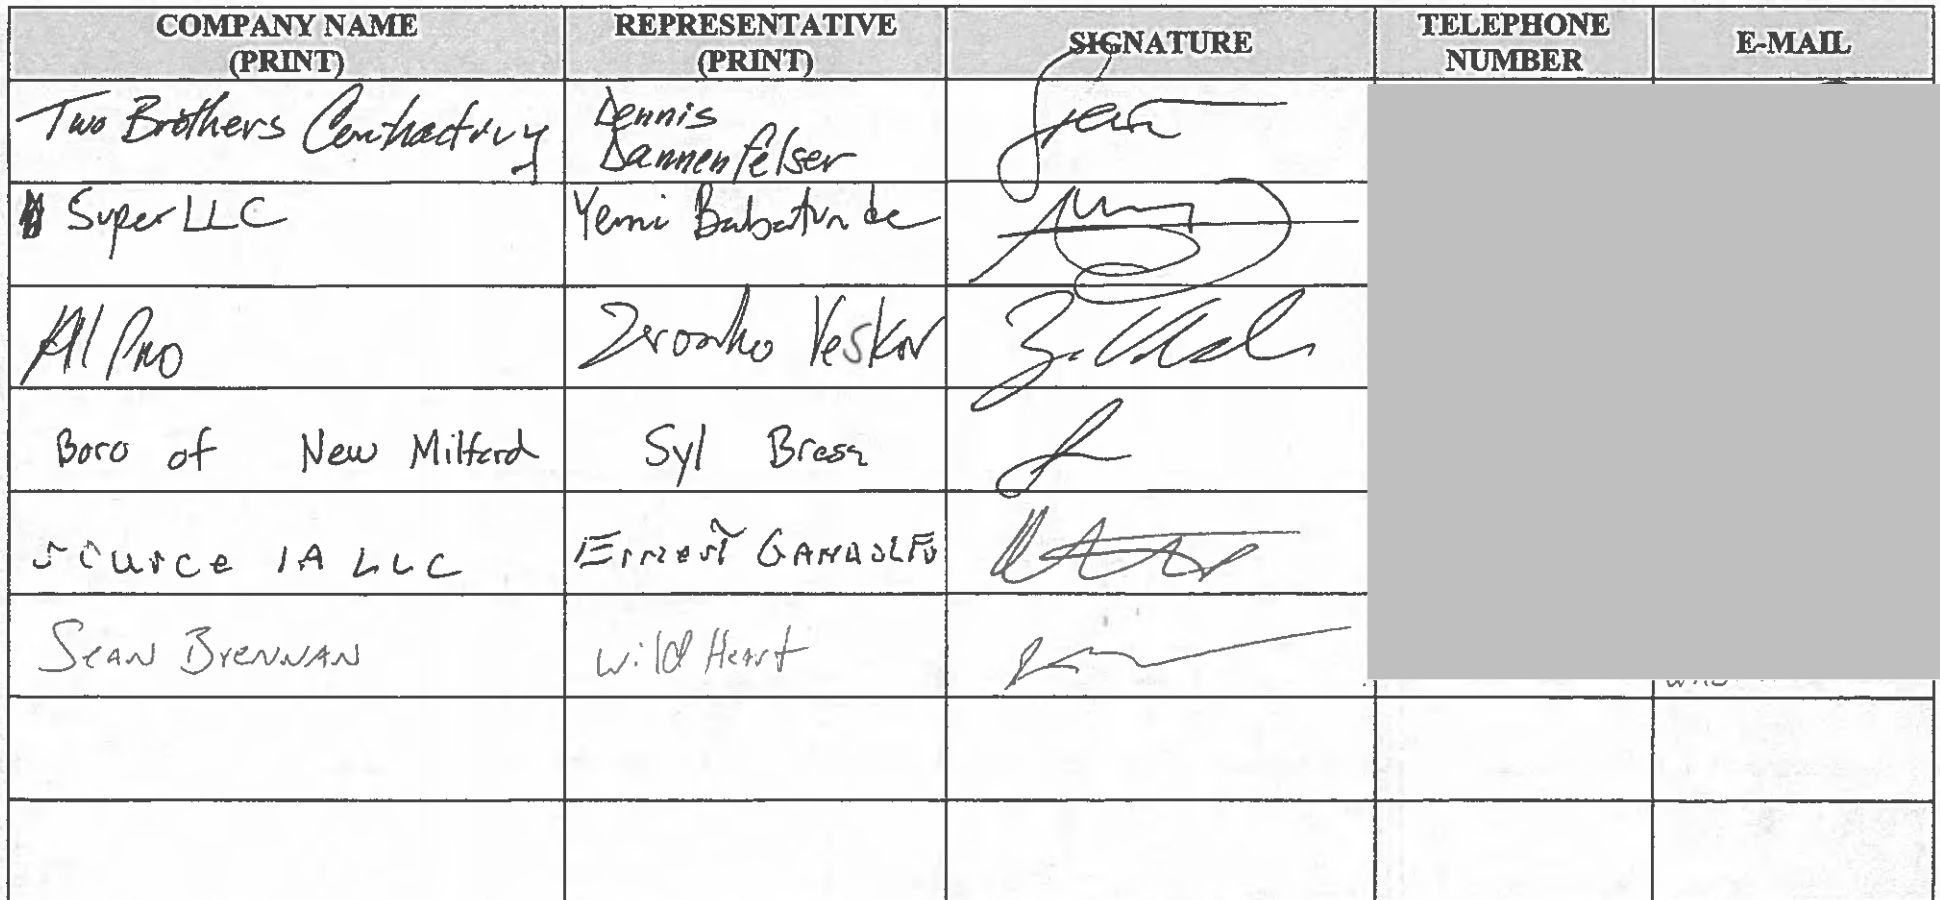 COMPANY NAME (PRINT) REPRESENTATIVE (PRINT) SIGNATURE TELEPHONE NUMBER E-MAIL
Two Brothers Contracting Dennis Dannenfelser
Super LLC Yemi Babatunde
All Pro Veskov
Boro of New Milford Syl Bresa
Source IA LLC Ernest GANDOLFO
SEAN BrENNAN Wild Heart